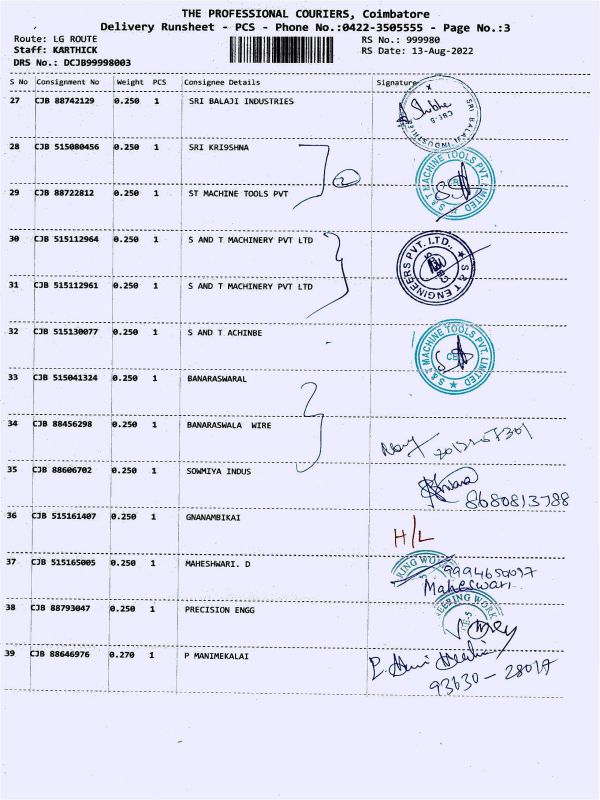 THE PROFESSIONAL COURIERS, Coimbatore
Delivery Runsheet - PCS - Phone No.:0422-3505555 - Page No.:3
Route: LG ROUTE RS No.: 999980
Staff: KARTHICK RS Date: 13-Aug-2022
DRS No.: DCJB99998003
S No Consignment No Weight PCS Consignee Details Signature
27 CJB 88742129 0.250 1 SRI BALAJI INDUSTRIES
SRI BALAJI INDUSTRIES CBE-5
28 CJB 515080456 0.250 1 SRI KRI9SHNA
S & T MACHINE TOOLS PVT. LIMITED
29 CJB 88722812 0.250 1 ST MACHINE TOOLS PVT
30 CJB 515112964 0.250 1 S AND T MACHINERY PVT LTD
S & T ENGINEERS PVT. LTD.,
31 CJB 515112961 0.250 1 S AND T MACHINERY PVT LTD
32 CJB 515130077 0.250 1 S AND T ACHINBE
S & T MACHINE TOOLS PVT. LIMITED
33 CJB 515041324 0.250 1 BANARASWARAL
34 CJB 88456298 0.250 1 BANARASWALA WIRE
35 CJB 88606702 0.250 1 SOWMIYA INDUS
8680813788
36 CJB 515161407 0.250 1 GNANAMBIKAI H/L
37 CJB 515165005 0.250 1 MAHESHWARI. D
9994650097
Maheswari
38 CJB 88793047 0.250 1 PRECISION ENGG
39 CJB 88646976 0.270 1 P MANIMEKALAI
93630-28017